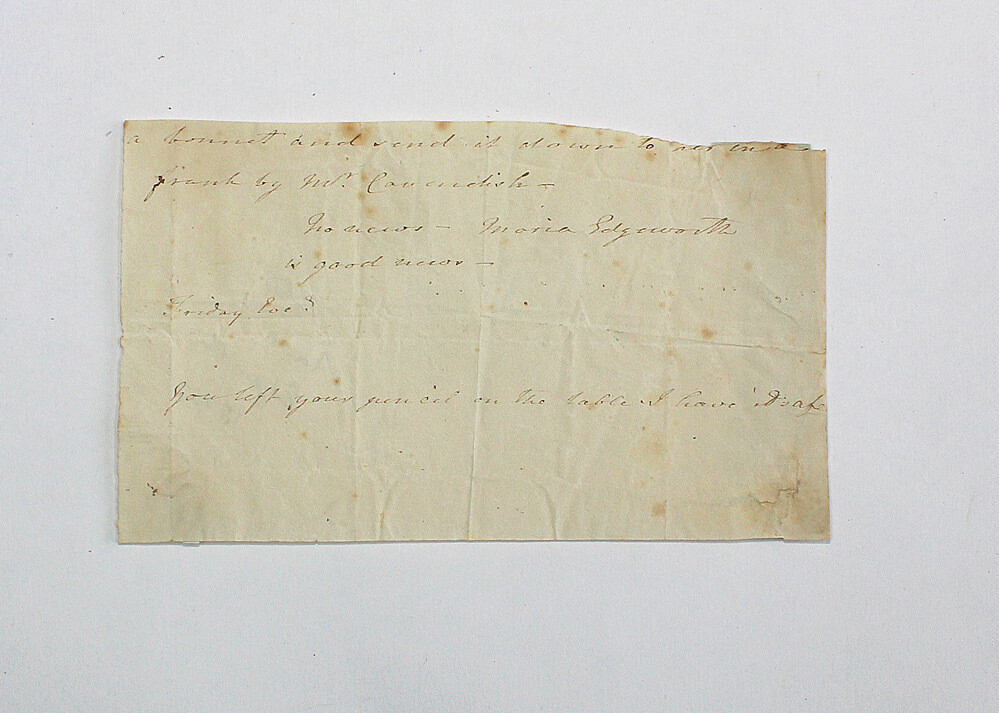 a bonnet and send it down to her in a
frank by Mr. Cavendish –
No news – Maria Edgeworth
is good news –
Friday Eveg.
You left your pencil on the table I have it safe